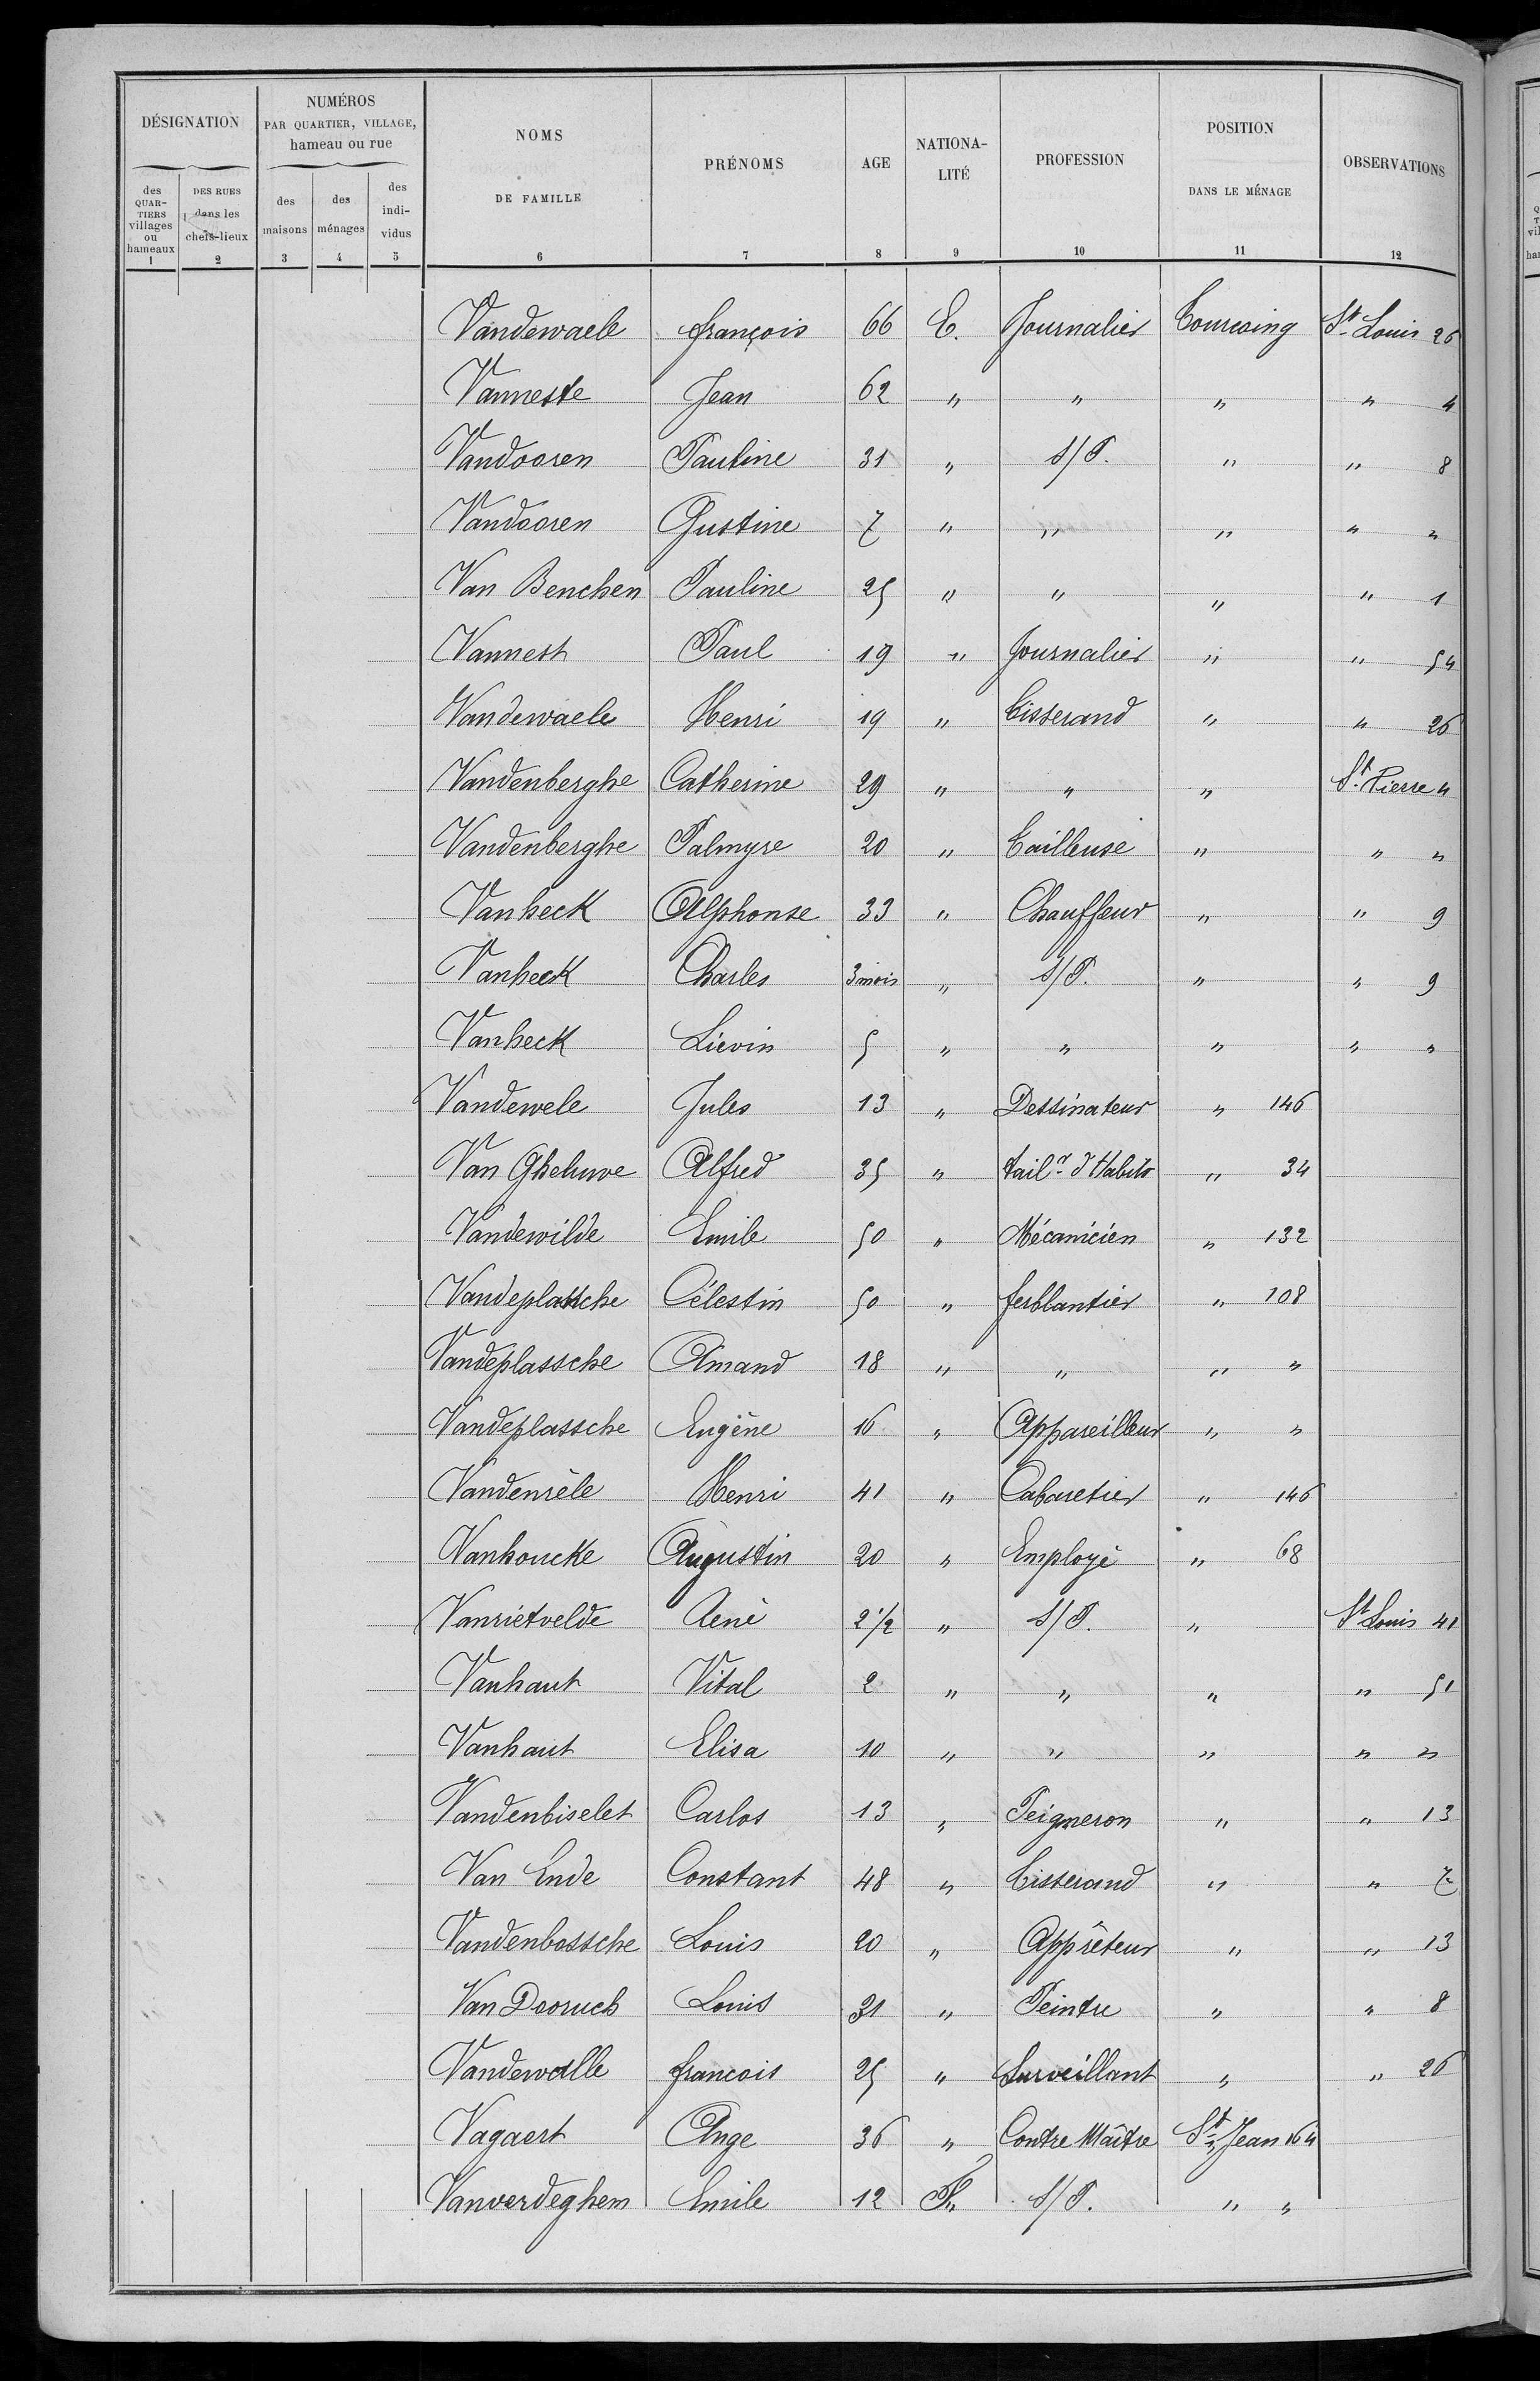 DÉSIGNATION
NUMÉROS
PAR QUARTIER, VILLAGE,
hameau ou rue
NOMS
DE FAMILLE
PRÉNOMS
AGE
NATIONA-
LITÉ
PROFESSION
POSITION
DANS LE MÉNAGE
OBSERVATIONS
des
QUAR-
TIERS
villages
ou
hameaux
DES RUES
dans les
chefs-lieux
des
maisons
des
ménages
des
indi-
vidus
1 2 3 4 5 6 7 8 9 10 11 12
Vandewaele François 66 E. Journalier Tourcoing St Louis 26
Vanneste Jean 62 " " " " 4
Vandooren Pauline 31 " S/P. " " 8
Vandooren Justine 7 " " " " "
Van Benchen Pauline 25 " " " " 1
Vannest Paul 19 " Journalier " " 54
Vandewaele Henri 19 " Tisserand " " 26
Vandenberghe Catherine 29 " " " St Pierre 4
Vandenberghe Palmyre 20 " Tailleuse " " "
Vanheck Alphonse 33 " Chauffeur " " 9
Vanheck Charles 3 mois " S/P. " " 9
Vanheck Liévin 5 " " " " "
Vandewele Jules 13 " Dessinateur " 146
Van Gheluwe Alfred 35 " tailr d'Habits " 34
Vandewilde Emile 50 " Mécanicien " 132
Vandeplassche Célestin 50 " ferblantier " 108
Vandeplassche Amand 18 " " " "
Vandeplassche Eugène 16 " Appareilleur " "
Vandenrèle Henri 41 " Cabaretier " 146
Vanhoucke Augustin 20 " Employé " 68
Vanrietvelde René 2 1/2 " S/P. " St Louis 41
Vanhaut Vital 2 " " " " 51
Vanhaut Elisa 10 " " " " "
Vandenbiselet Carlos 13 " Peigneron " " 13
Van Ende Constant 48 " Tisserand " " 7
Vandenbossche Louis 20 " Apprêteur " " 13
Van Louis 31 " Peintre " " 8
Vandewalle francois 25 " Surveillant " " 26
Vagaert Ange 36 " Contre Maître St Jean 164
Vanverdeghem Emile 12 F. S/P. " "